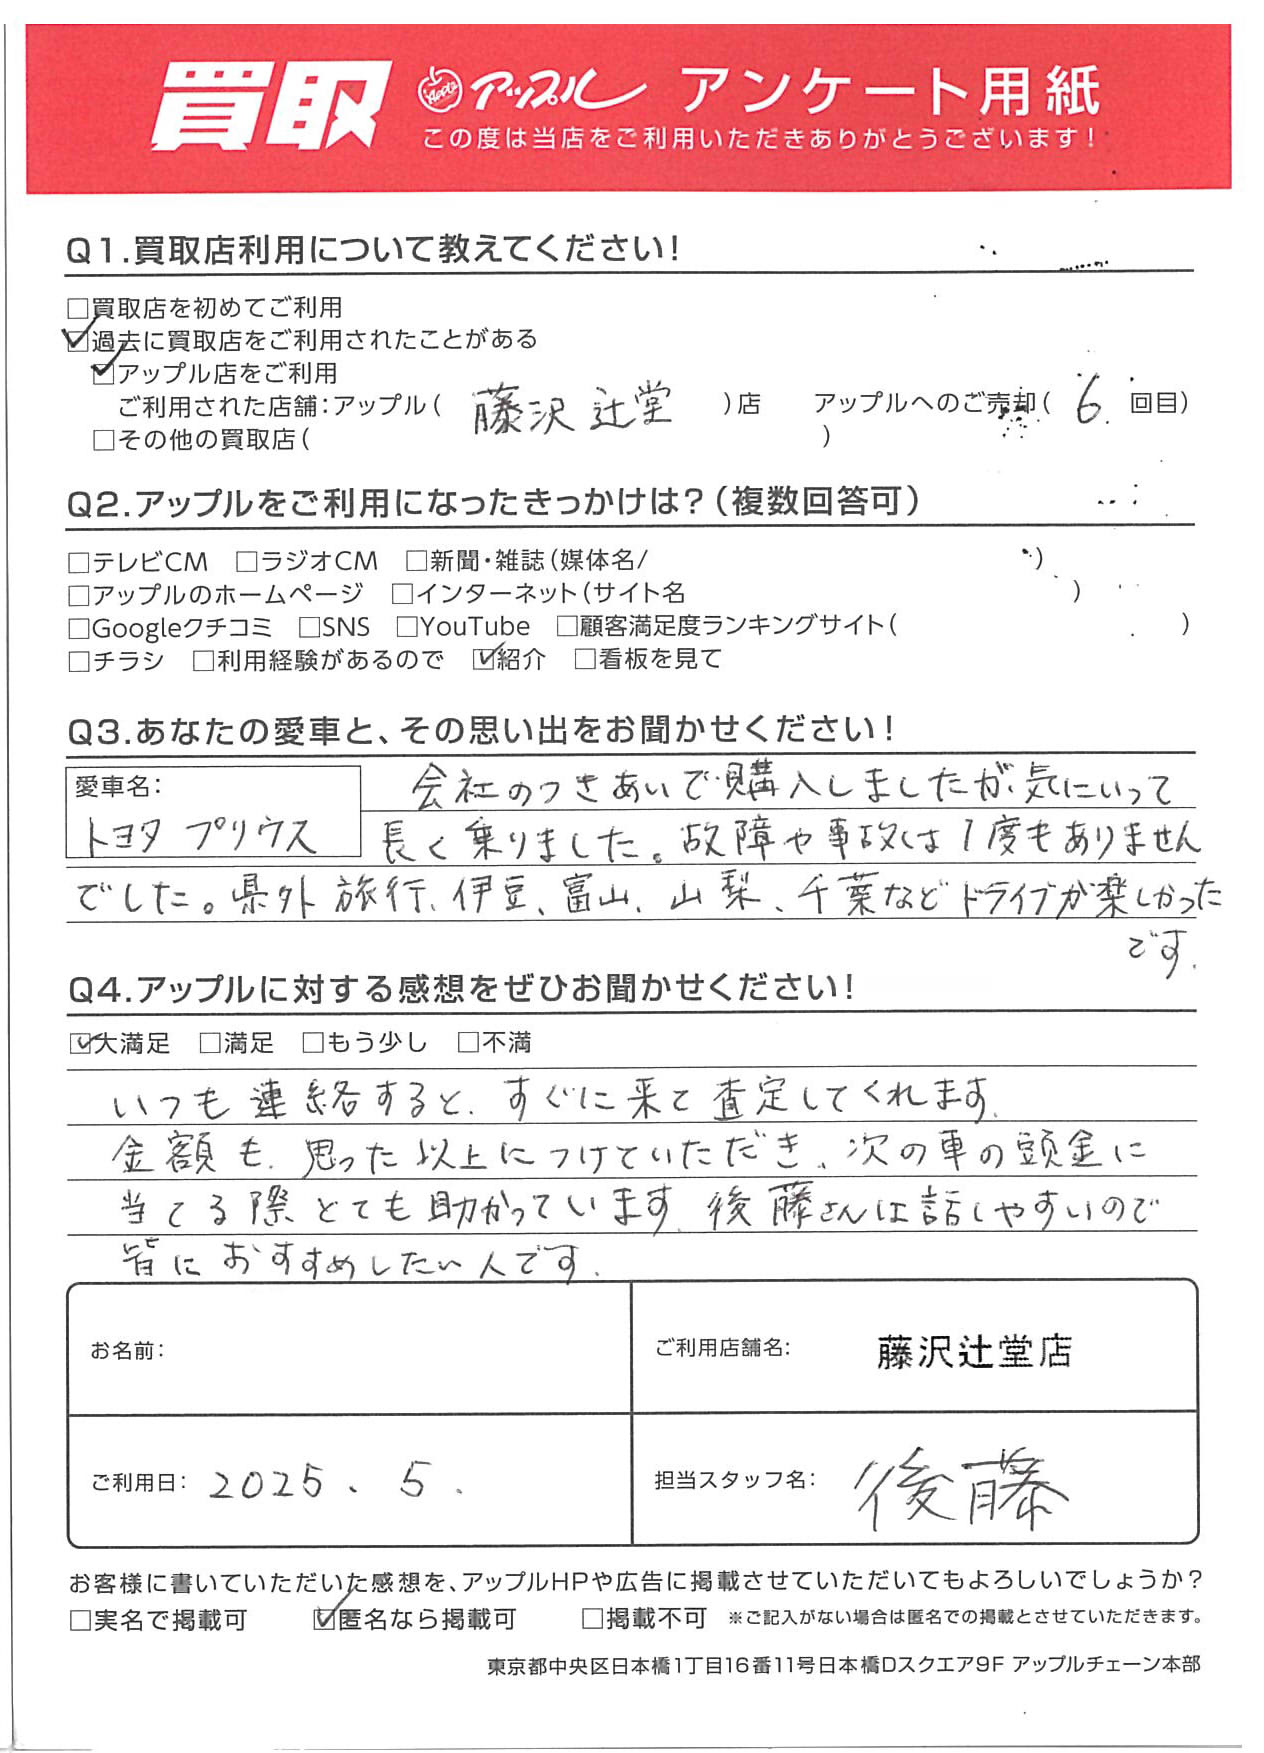 買取 Apple アップル アンケート用紙
この度は当店をご利用いただきありがとうございます!
Q1.買取店利用について教えてください!
□買取店を初めてご利用
☑過去に買取店をご利用されたことがある
☑アップル店をご利用
ご利用された店舗:アップル( 藤沢辻堂 )店 アップルへのご売却( 6 回目)
□その他の買取店( )
Q2.アップルをご利用になったきっかけは?(複数回答可)
□テレビCM □ラジオCM □新聞・雑誌(媒体名/ )
□アップルのホームページ □インターネット(サイト名 )
□Googleクチコミ □SNS □YouTube □顧客満足度ランキングサイト( )
□チラシ □利用経験があるので ☑紹介 □看板を見て
Q3.あなたの愛車と、その思い出をお聞かせください!
愛車名:
トヨタ プリウス
会社のつきあいで購入しましたが、気にいって
長く乗りました。故障や事故は1度もありません
でした。県外旅行、伊豆、富山、山梨、千葉などドライブが楽しかった
です.
Q4.アップルに対する感想をぜひお聞かせください!
☑大満足 □満足 □もう少し □不満
いつも連絡すると、すぐに来て査定してくれます.
金額も、思った以上につけていただき、次の車の頭金に
当てる際とても助かっています.後藤さんは話しやすいので
皆におすすめしたい人です.
お名前:
ご利用店舗名: 藤沢辻堂店
ご利用日: 2025.5.
担当スタッフ名: 後藤
お客様に書いていただいた感想を、アップルHPや広告に掲載させていただいてもよろしいでしょうか?
□実名で掲載可 ☑匿名なら掲載可 □掲載不可 ※ご記入がない場合は匿名での掲載とさせていただきます。
東京都中央区日本橋1丁目16番11号日本橋Dスクエア9F アップルチェーン本部